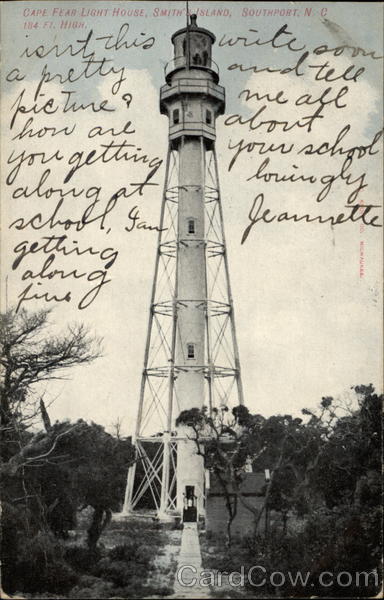 CAPE FEAR LIGHT HOUSE, SMITH'S ISLAND, SOUTHPORT, N. C
184 FT. HIGH.
isn't this
a pretty
picture?
how are
you getting
along at
school, I am
getting
along
fine
write soon
and tell
me all
about
your school
lovingly
Jeannette
MILWAUKEE.
CardCow.com